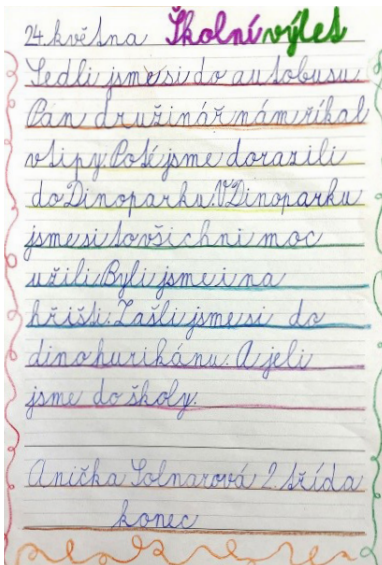 24. května Školní výlet
Sedli jsme si do autobusu
Pán družinář nám říkal
vtipy. Poté jsme dorazili
do Dinoparku. V Dinoparku
jsme si to všichni moc
užili. Byli jsme i na
hřišti. Zašli jsme si do
dinohurikánu. A jeli
jsme do školy.
Anička Solnarová 2. třída
konec